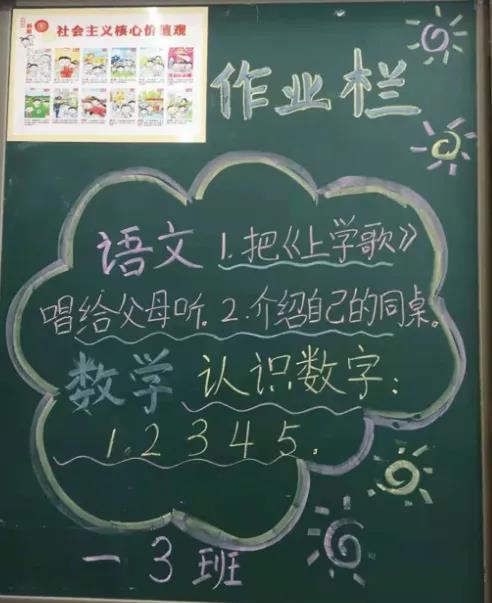 社会主义核心价值观
作业栏
语文 1.把《上学歌》
唱给父母听。2.介绍自己的同桌。
数学 认识数字：
1.2 3 4 5。
一 3 班